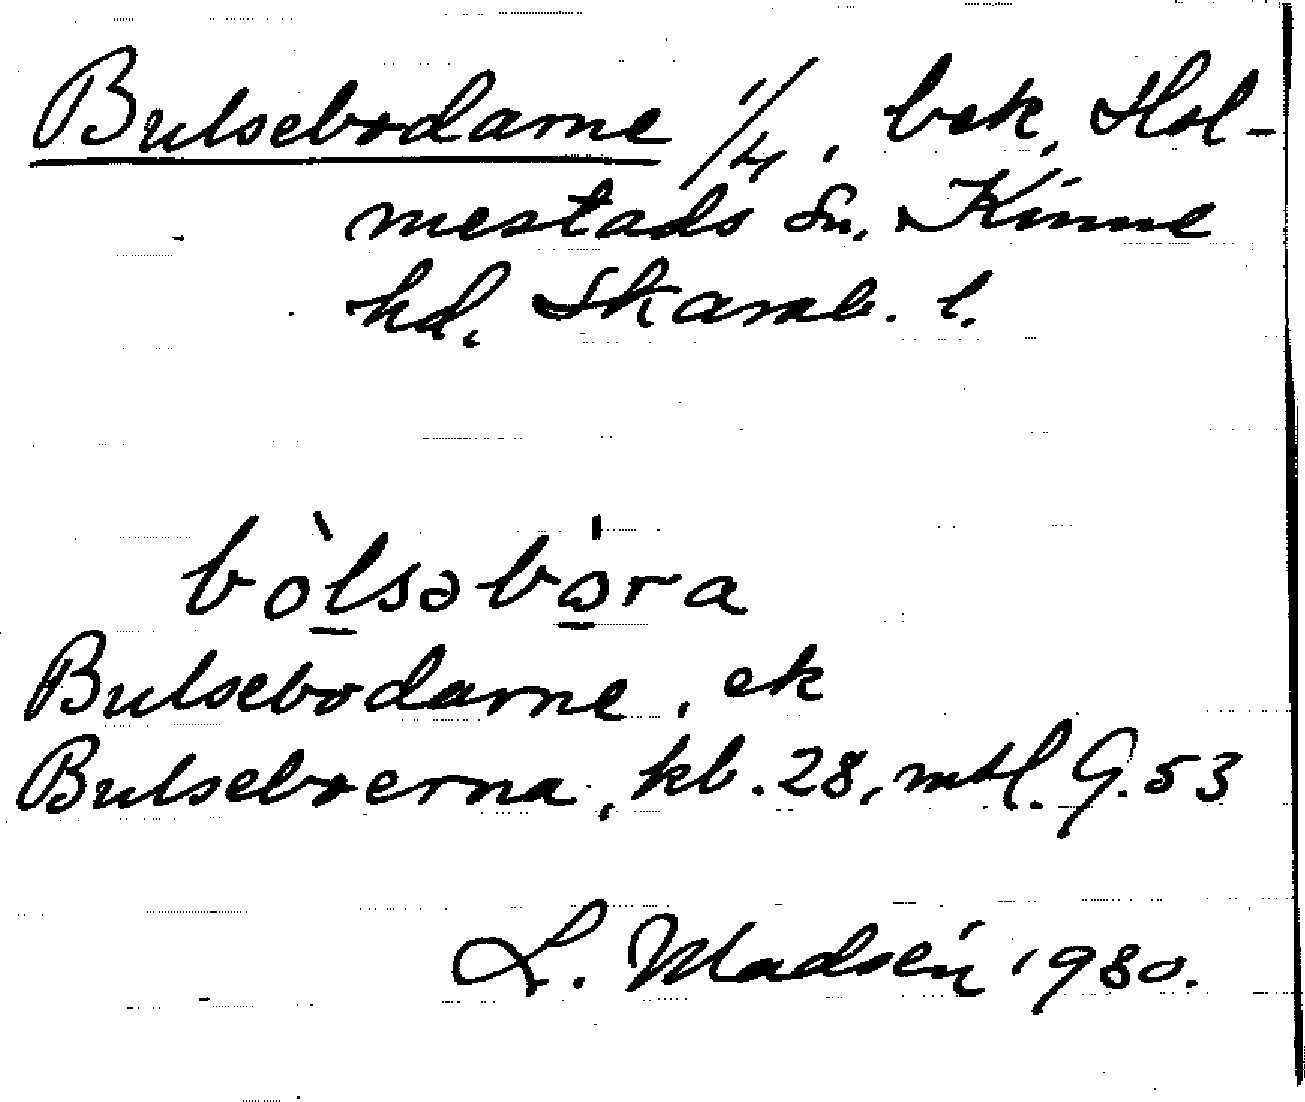 Bulsebodarne 1/4, bek, Hol-
mestads sn, Kinne
hd, Skarab. l.
bòlsəbɷ̀ra
Bulsebodarne, ek
Bulseboerna, kb. 28, mtl. G. 53
L. Madsén 1930.